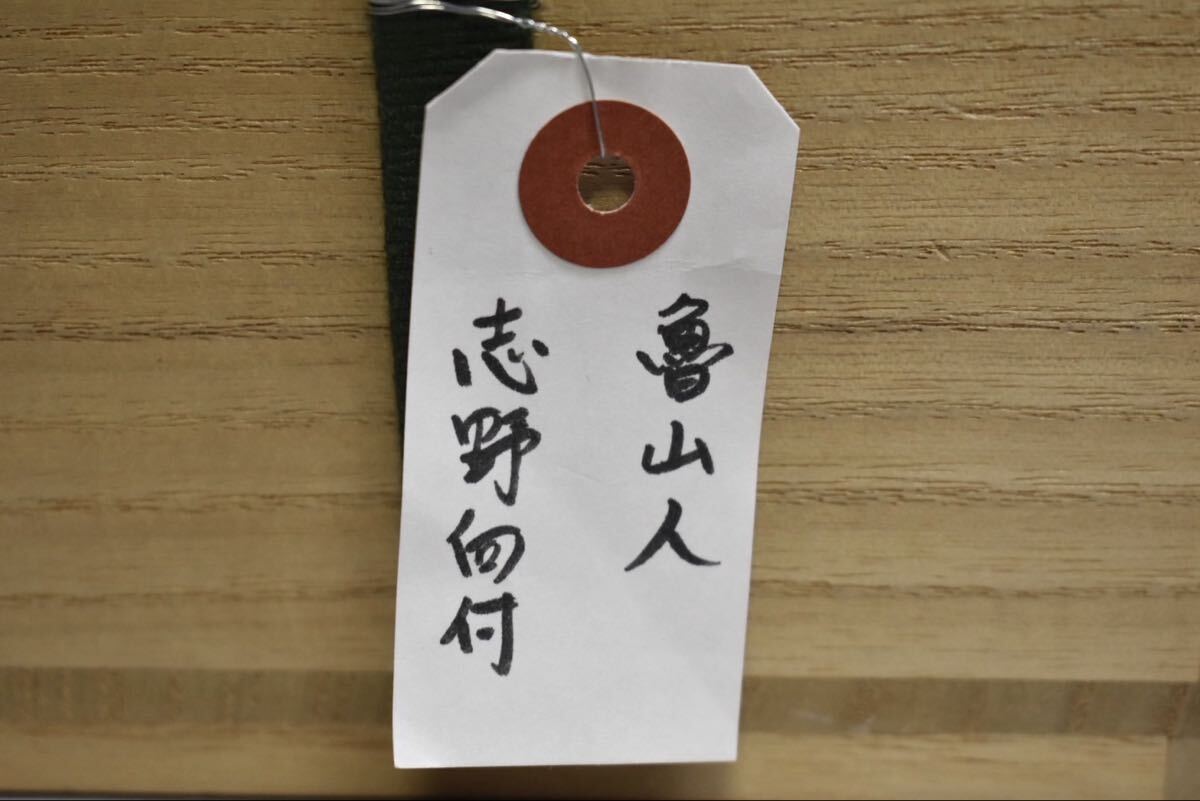 魯山人
志野向付